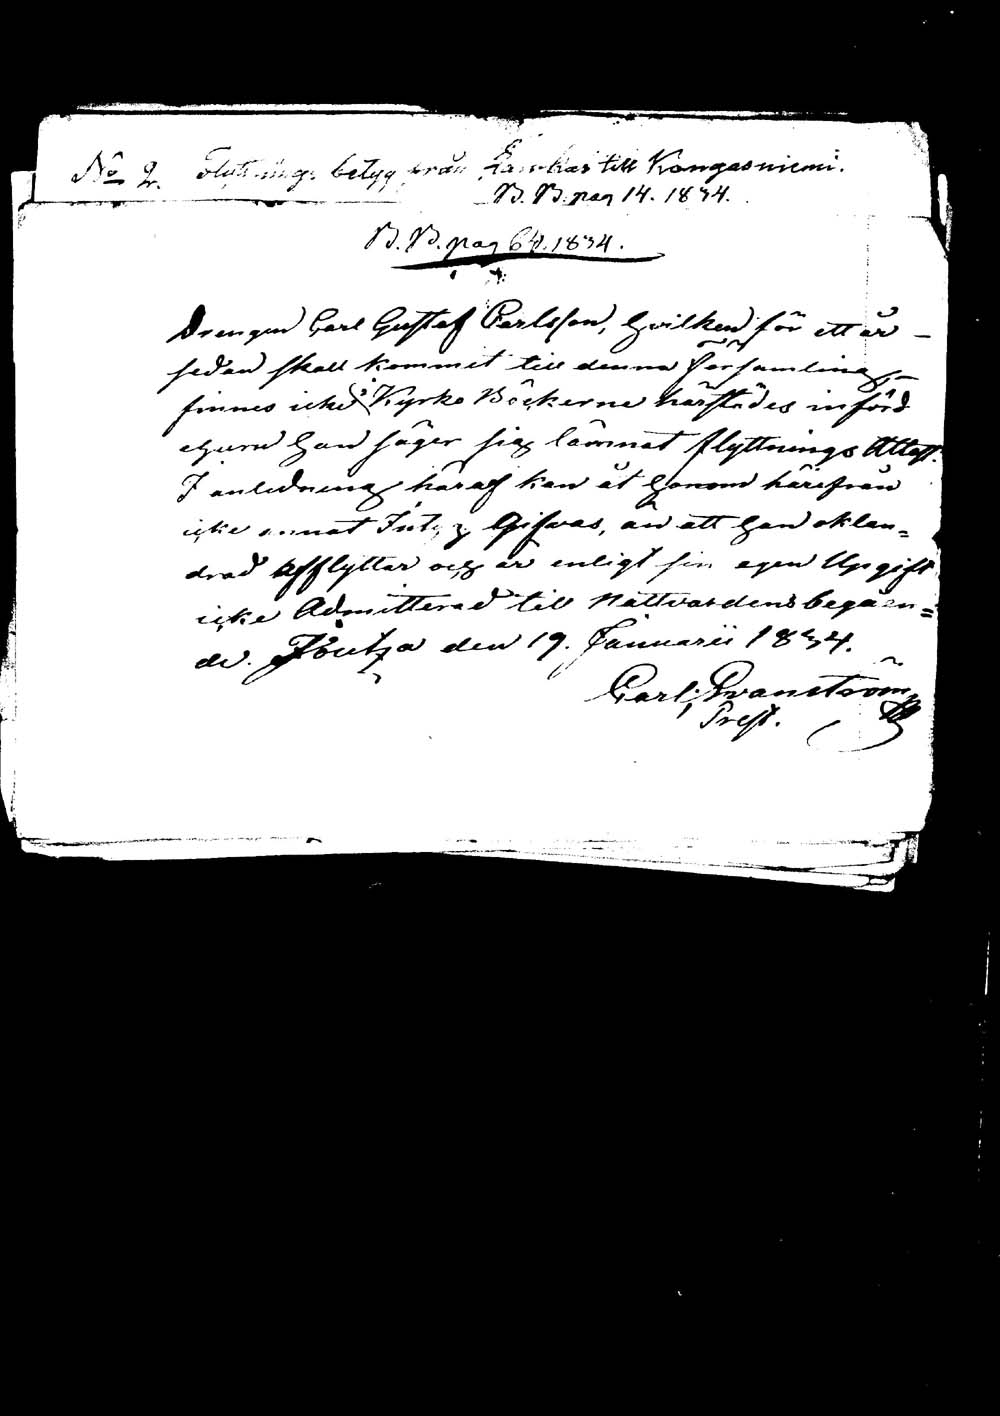 No 2. Flyttnings betyg från till Kangasniemi.
B. B. pag 14. 1834.
B. B. pag 64. 1834.
Drengen Carl Gustaf Carlsson, hvilken för ett år
sedan skall kommit till denna Församling,
finnes icke i Kyrko Böckerne härstädes införd
ehuru han säger sig lämnat flyttnings Attest.
I anledning häraf kan åt honom härifrån
icke annat Intyg Gifvas, än att han oklan=
drad afflyttar och är enligt sin egen Upgift
icke Admitterad till Nattvardens begåen=
de. Joutza den 19. Januarii 1834.
Carl Svanström
Prest.